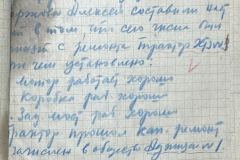 Алексей составили
в том что сего числа был
с ремонта трактор ХТЗ
чем установлено
мотор работает хорошо
Коробка раб хорошо
Зад мост раб хорошо
трактор прошол кап. ремонт
зачислен в